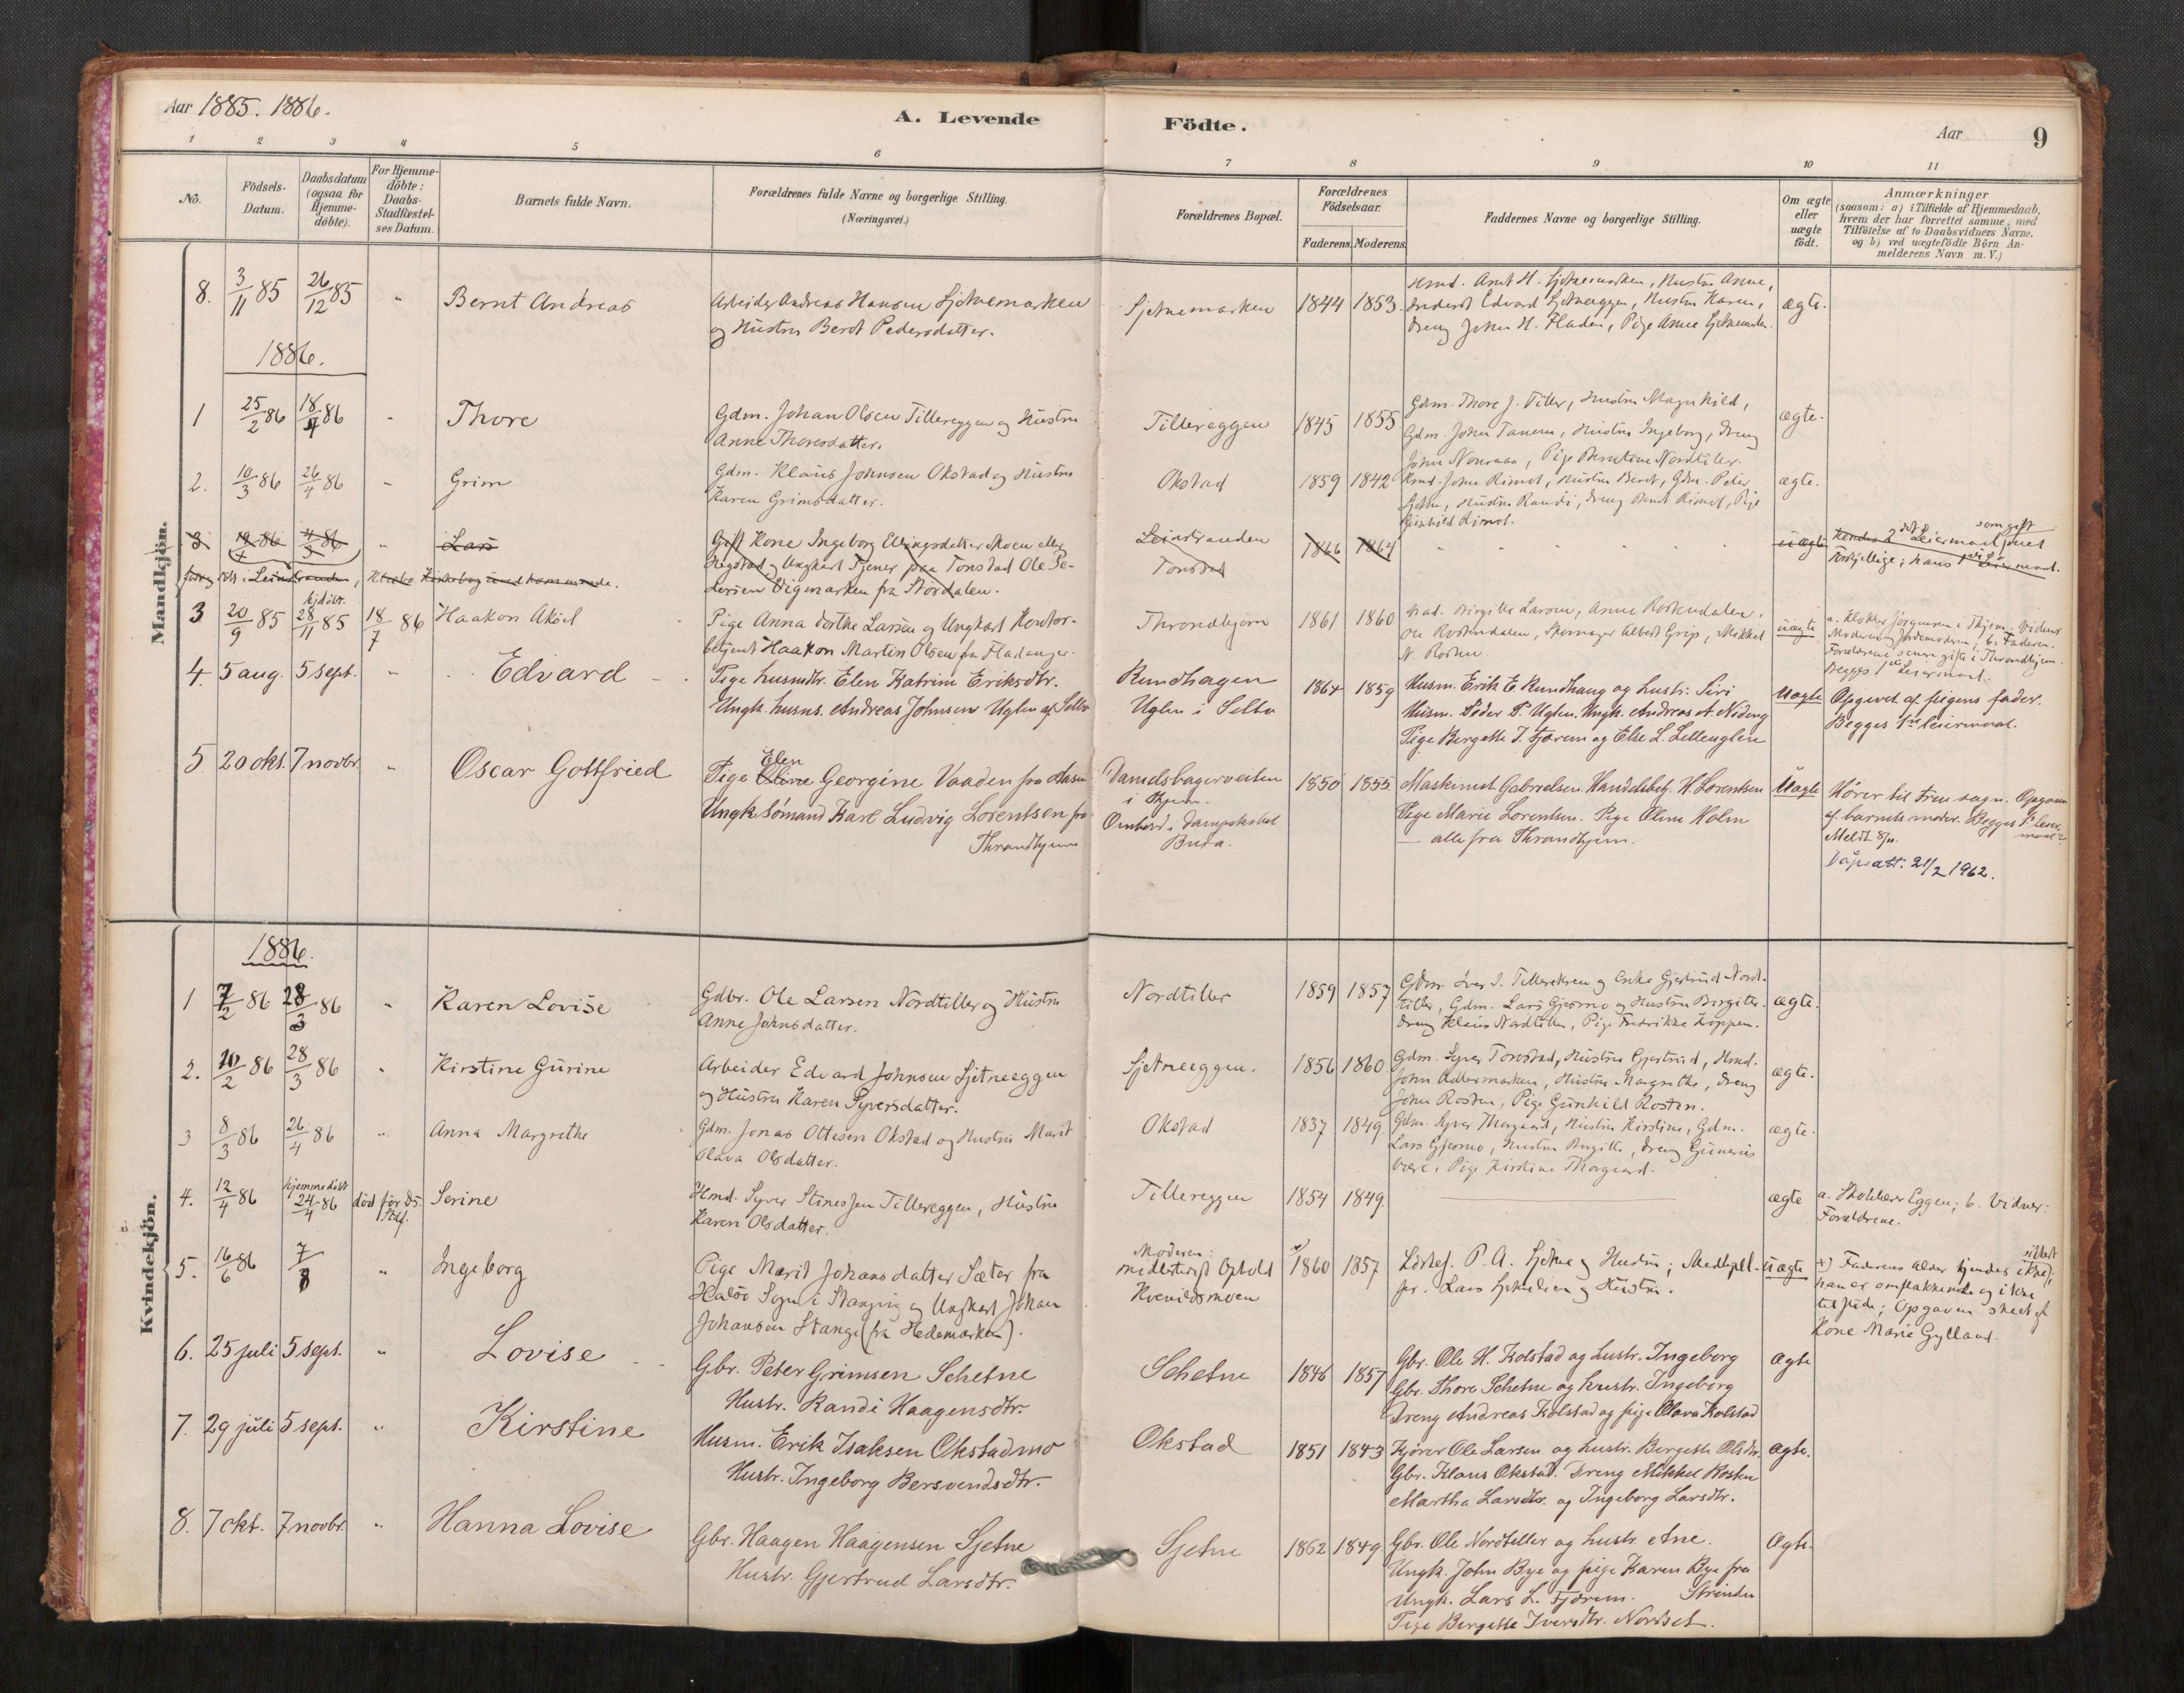 Aar 1885. 1886.
A. Levende Födte.
Aar 9
1 2 3 4 5 6 7 8 9 10 11
No.
Födsels-Datum.
Daabsdatum (ogsaa for Hjemme-döbte).
For Hjemme-döbte: Daabs-Stadfæstel-ses Datum.
Barnets fulde Navn.
Forældrenes fulde Navne og borgerlige Stilling. (Næringsvei.)
Forældrenes Bopæl.
Forældrenes Födselsaar.
Faderens. Moderens.
Faddernes Navne og borgerlige Stilling.
Om ægte eller uægte födt.
Anmærkninger
(saasom: a) i Tilfælde af Hjemmedaab, hvem der har forrettet samme, med Tilföielse af to Daabsvidners Navne, og b) ved uægtefödte Börn An-melderens Navn m. V.)
Mandkjön.
8. 3/11 85 26/12 85 " Bernt Andreas
Arbeider Andreas Hansen Sjetnemarken
og Hustru Berit Pedersdatter.
Sjetnemarken 1844 1853.
Hmd. Arnt H. Sjetnemarken, Hustru Anne,
Edvard Sjetneeggen, Hustru Karen,
Dreng John H. Fladen, Pige Anne Sjetnemarken.
ægte.
1886.
1 25/2 86 18/4 86 " Thore
Gdm. Johan Olsen Tillereggen og Hustru
Anne Thoresdatter.
Tillereggen 1845 1855
Gdm. Thore J. Tiller, Hustru Magnhild,
Gdm. John Tanem, Hustru Ingeborg, Dreng
John , Pige Berntine Nordtiller.
ægte.
2. 10/3 86 26/4 86 " Grim
Gdm. Klaus Johnsen Okstad og Hustru
Karen Grimsdatter.
Okstad 1859 1842
Hmd. John Rimol, Hustru Berit, Gdm. Peter
Sjetne, Hustru Randi, Dreng Bernt Rimol, Pige
Gunhild Rimol.
ægte.
3 19/1 86 4/3 86 " Lars
Gift Kone Ingeborg Ellingsdatter Moen eller
Hegstad og Ungkarl Tjener paa Tonstad Ole Pe-
dersen Vigmarken fra Stördalen.
Leinstranden
Tonstad
1866 1864 " " " " "
uægte
Hendes 2det Leiermaal som gift
forskjellige; hans 1ste Leiermaal.
döbt i Leinstranden, Klæbo Kirkebog uvedkommende.
3 20/9 85 hjdöbt. 28/11 85 18/7 86 Haakon Aksel
Pige Anna Dorthe Larsen og Ungkarl Kontor-
betjent Haakon Martin Olsen fra Fladanger.
Throndhjem 1861 1860
Mad. Birgitte Larsen, Anne Rostendalen,
Ole Rostendalen, Skomager Albert Grip, Mikkel
N. Rosten
uægte
a. Klokker Jörgensen i Thjem. Vidner
Moderen, Jordemoderen; b. Faderen.
Forældrene senere gifte i Throndhjem.
Begges 1ste Leiermaal.
4. 5 aug. 5 sept. " Edvard
Pige husmdtr. Elen Katrine Eriksdtr.
Ungk. husms. Andreas Johnsen Uglen af Selbo
Rundhagen
Uglen i Selbo
1864 1859
Husm. Erik E. Rundhaug og hustr. Siri
Husm. Peder P. Uglen. Ungk. Andreas A. Nideng
Pige Bergette J. Fjærem og Else L. Lilleuglen
Uægte
Opgivet af pigens fader.
Begges 1ste leiermaal.
5 20 okt. 7 novbr. " Oscar Gottfried
Pige Elen Georgine Vaaden fra Aasen
Ungk. Sömand Karl Ludvig Lorentsen fra
Throndhjem
i Thjem.
Ombord i Dampskibet
Buda.
1850 1855.
Maskinist Gabrielsen. Handelsbetj. H. Lorentsen
Pige Marie Lorentsen. Pige Oline Holm
— alle fra Throndhjem.
Uægte
Hörer til Frue sogn. Opgaven
af barnets moder. Begges 1ste leier-
maal?
Meldt 8/11.
Dåpsatt. 21/2 1962.
Kvindekjön.
1886.
1 7/2 86 28/3 86 " Karen Lovise
Gdbr. Ole Larsen Nordtiller og Hustru
Anne Johnsdatter.
Nordtiller 1859 1857
Gdm. Iver I. Tillerekren og Enke Gjertrud Nord-
tiller, Gdm. Lars Gjermo og Hustru Birgitte.
Dreng Klaus Nordtiller, Pige Fredrikke Koppen.
ægte.
2. 10/2 86 28/3 86 " Kirstine Gurine
Arbeider Edvard Johnsen Sjetneeggen
og Hustru Karen Syversdatter.
Sjetneeggen. 1856 1860
Gdm. Syver Tonstad, Hustru Gjertrud, Hmd.
John , Hustru Margrethe, Dreng
John Rosten, Pige Gunhild Rosten.
ægte.
3 8/3 86 26/4 86 " Anna Margrethe
Gdm. Jonas Ottesen Okstad og Hustru Marit
Olava Olsdatter.
Okstad 1837 1849.
Gdm. Syver Thorgaard, Hustru Kirstine, Gdm.
Lars Gjermo, Hustru Birgitte, Dreng Gunerius
, Pige Kirstine Thorgaard.
ægte.
4. 12/4 86 hjemmedöbt 24/4 86 död för D: Stdf. Serine
Hmd. Syver Stinessen Tillereggen, Hustru
Karen Olsdatter.
Tillereggen 1854 1849.
ægte
a. Eggen; b. Vidner:
Forældrene.
5. 16/6 86 7/8 " Ingeborg
Pige Marit Johansdatter Sæter fra
Halsö Sogn i Stangvig og Ungkarl Johan
Johansen Stange (fra Hedemarken).
Moderen:
midlertidigt Ophold
Kvenildsmoen
x) 1860 1857
P. A. Sjetne og Hustru;
Lars Sjetnelien og Hustru.
uægte
x) Faderens Alder kjendes ikke sikkert;
han er omflakkende og ikke
tilstede; Opgaven skeet af
Kone Marie Gylland.
6. 25 juli 5 sept. " Lovise
Gbr. Peter Grimsen Schetne
Hustr. Randi Haagensdtr.
Schetne 1846 1857
Gbr. Ole H. Kolstad og hustr. Ingeborg
Gbr. Thore Schetne og hustr. Ingeborg
Dreng Andreas Kolstad og pige Olava Kolstad
Ægte
7. 29 juli 5 sept. " Kirstine
Husm. Erik Isaksen Okstadmo
Hustr. Ingeborg Bersvendsdtr.
Okstad 1851 1843
Kjörer Ole Larsen og hustr. Bergette Olsdtr.
Gbr. Klaus Okstad. Dreng Mikkel Rosten
Martha Larsdtr. og Ingeborg Larsdtr.
Ægte.
8. 7 okt. 7 novbr. " Hanna Lovise
Gbr. Haagen Haagensen Sjetne
Hustr. Gjertrud Larsdtr.
Sjetne 1862 1849
Gbr. Ole Nordtiller og hustr. Ane.
Ungk. John Bye og pige Karen Bye fra
Ungk. Lars L. Fjærem. Strinden
Pige Bergette Iversdtr. Nordset.
Ægte.